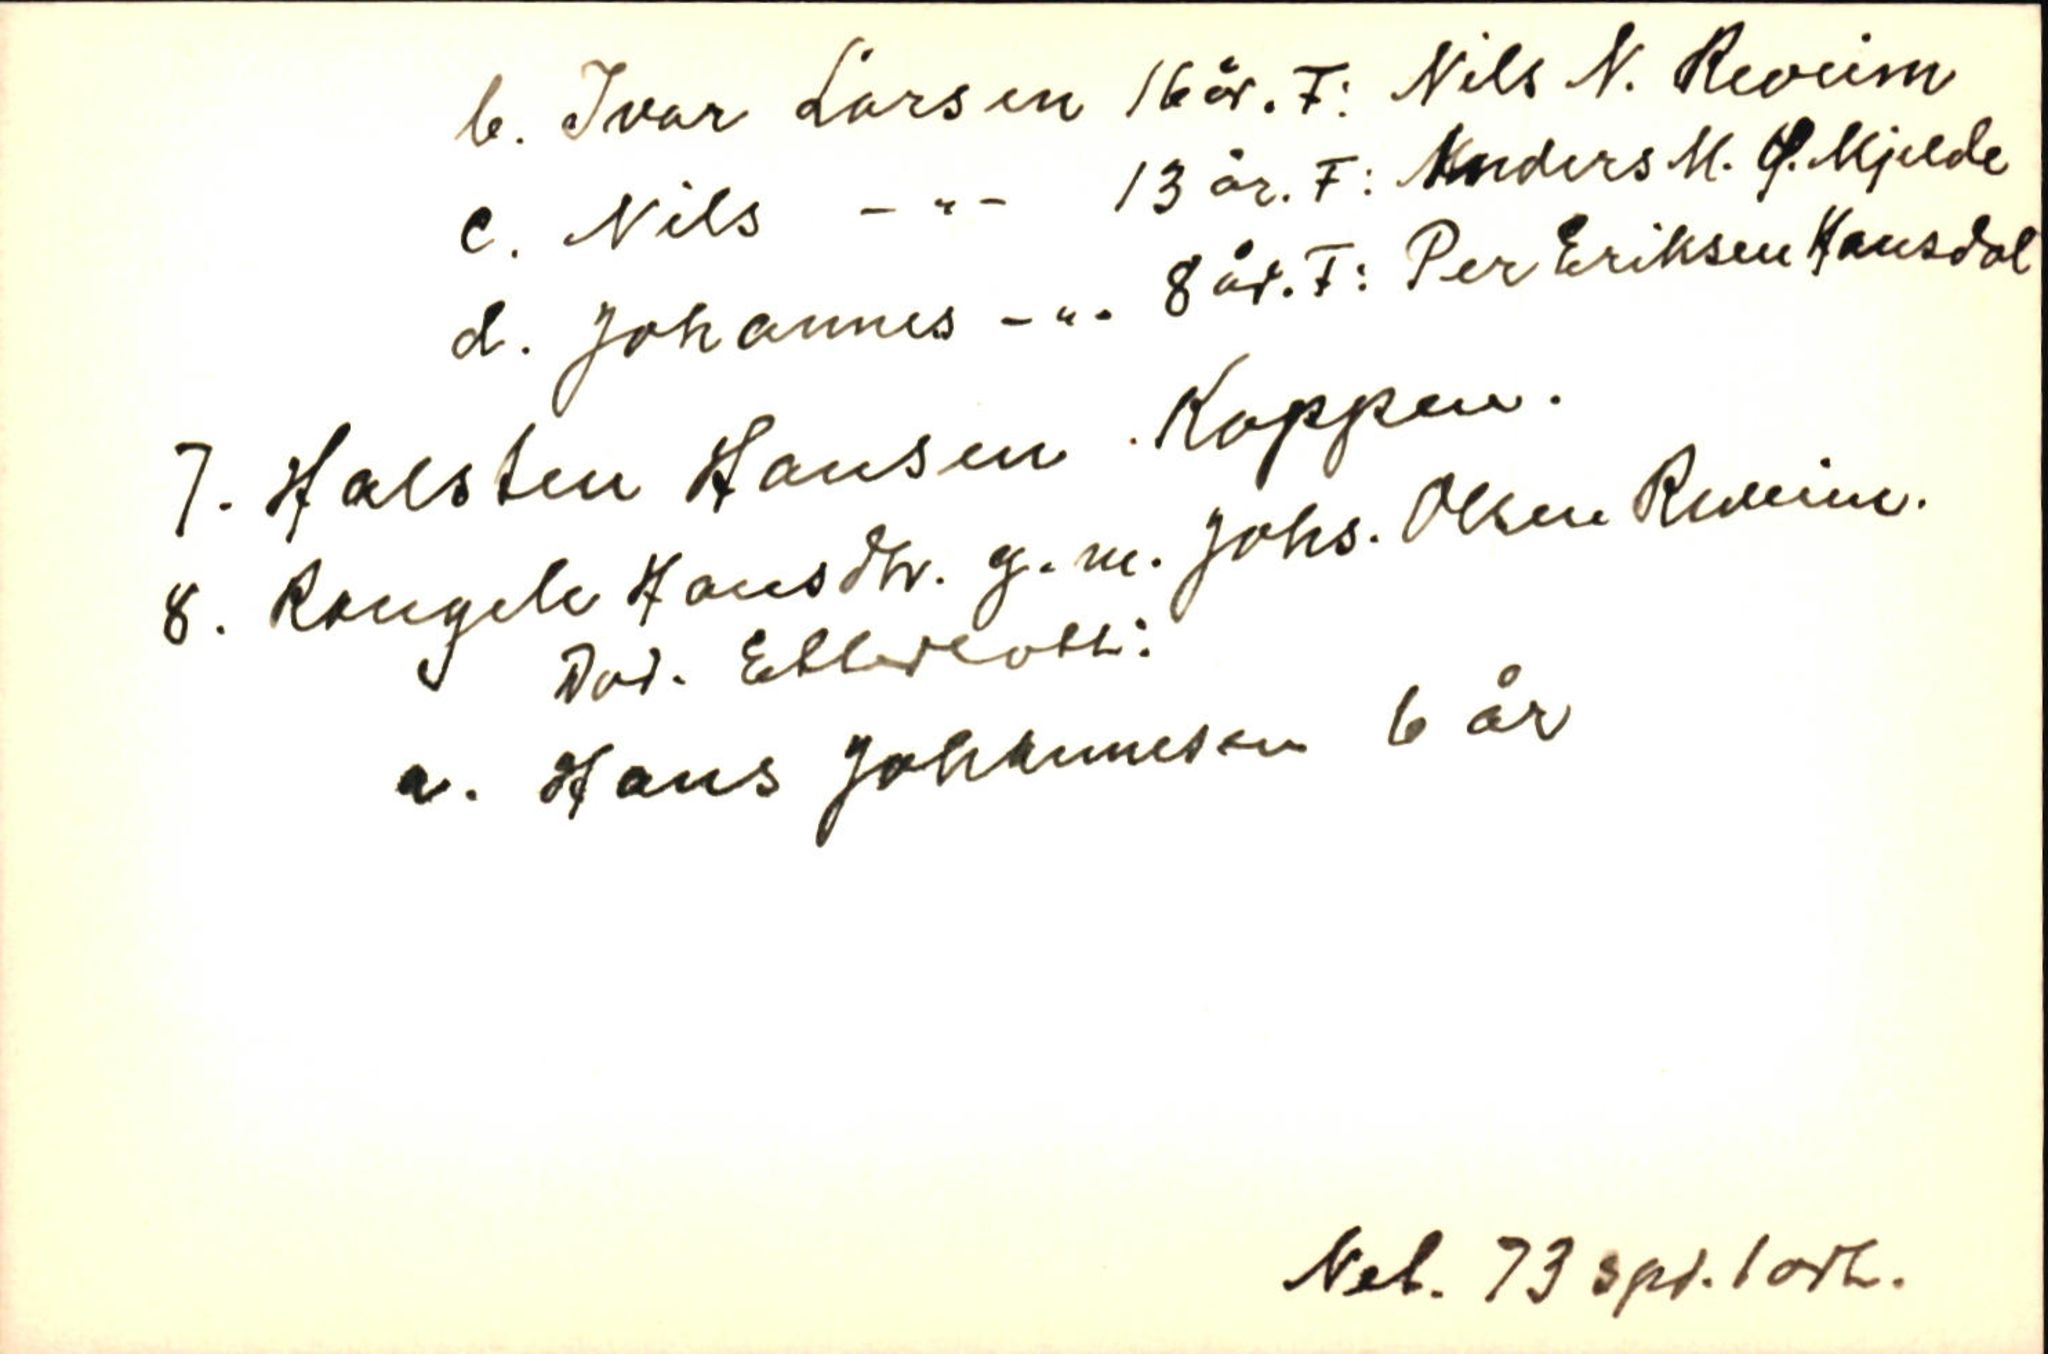 b. Ivar Larsen 16 år. F: Nils N. Reveim
c. Nils -"- 13 år. F: Anders M. Ø. Mjelde
d. Johannes -"- 8 år. F: Per Eriksen Hausdal
7. Halsten Hansen Koppen.
8. Rangele Hansdtr. g. m. Johs. Olsen Reveim.
Død. Etterlott:
a. Hans Johannesen 6 år
Net. 73 spd. 1 ort.